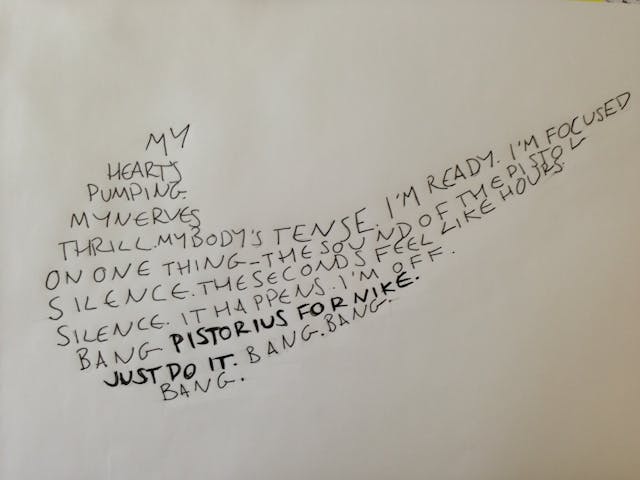 MY
HEART'S
PUMPING.
MY NERVES
THRILL. MY BODY'S TENSE. I'M READY. I'M FOCUSED
ON ONE THING-THE SOUND OF THE PISTOL
SILENCE. THE SECONDS FEEL LIKE HOURS.
SILENCE. IT HAPPENS. I'M OFF.
BANG PISTORIUS FOR NIKE.
JUST DO IT. BANG. BANG.
BANG.